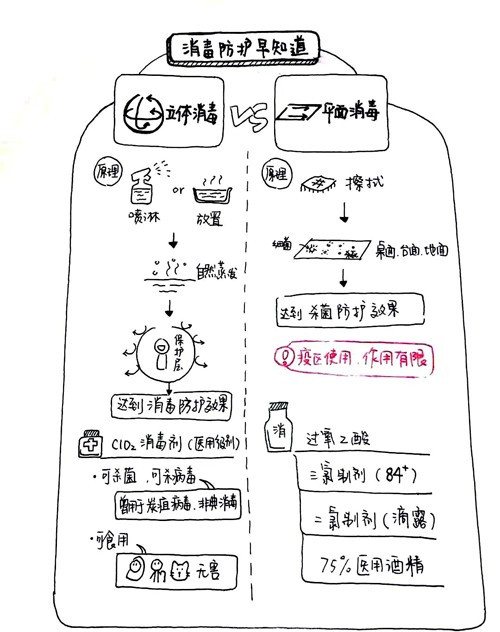 消毒防护早知道
立体消毒
VS
平面消毒
原理
喷淋 or 放置
自然蒸发
保护层
达到消毒防护效果
ClO2消毒剂(医用级别)
·可杀菌、可杀病毒
曾用于炭疽病毒、非典消毒
·可食用
无害
原理
擦拭
细菌
桌面、台面、地面
达到杀菌防护效果
! 疫区使用、作用有限
消
过氧乙酸
三氯制剂(84+)
二氯制剂(滴露)
75%医用酒精